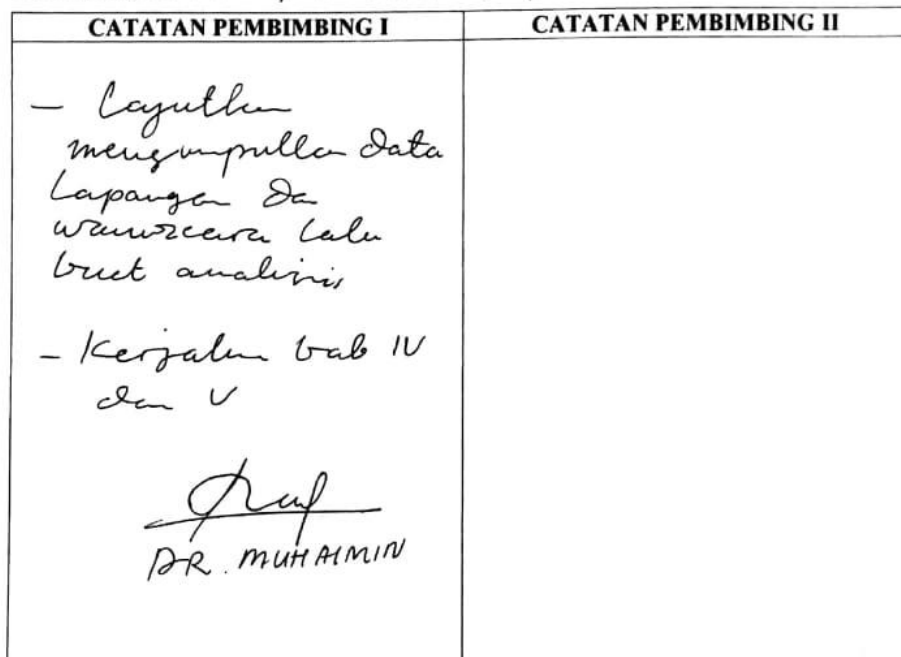 CATATAN PEMBIMBING I
CATATAN PEMBIMBING II
- Lanjutkan
mengumpulkan data
Lapangan dan
wawancara lalu
buat analisis
- Kerjakan bab IV
dan V
DR. MUHAIMIN